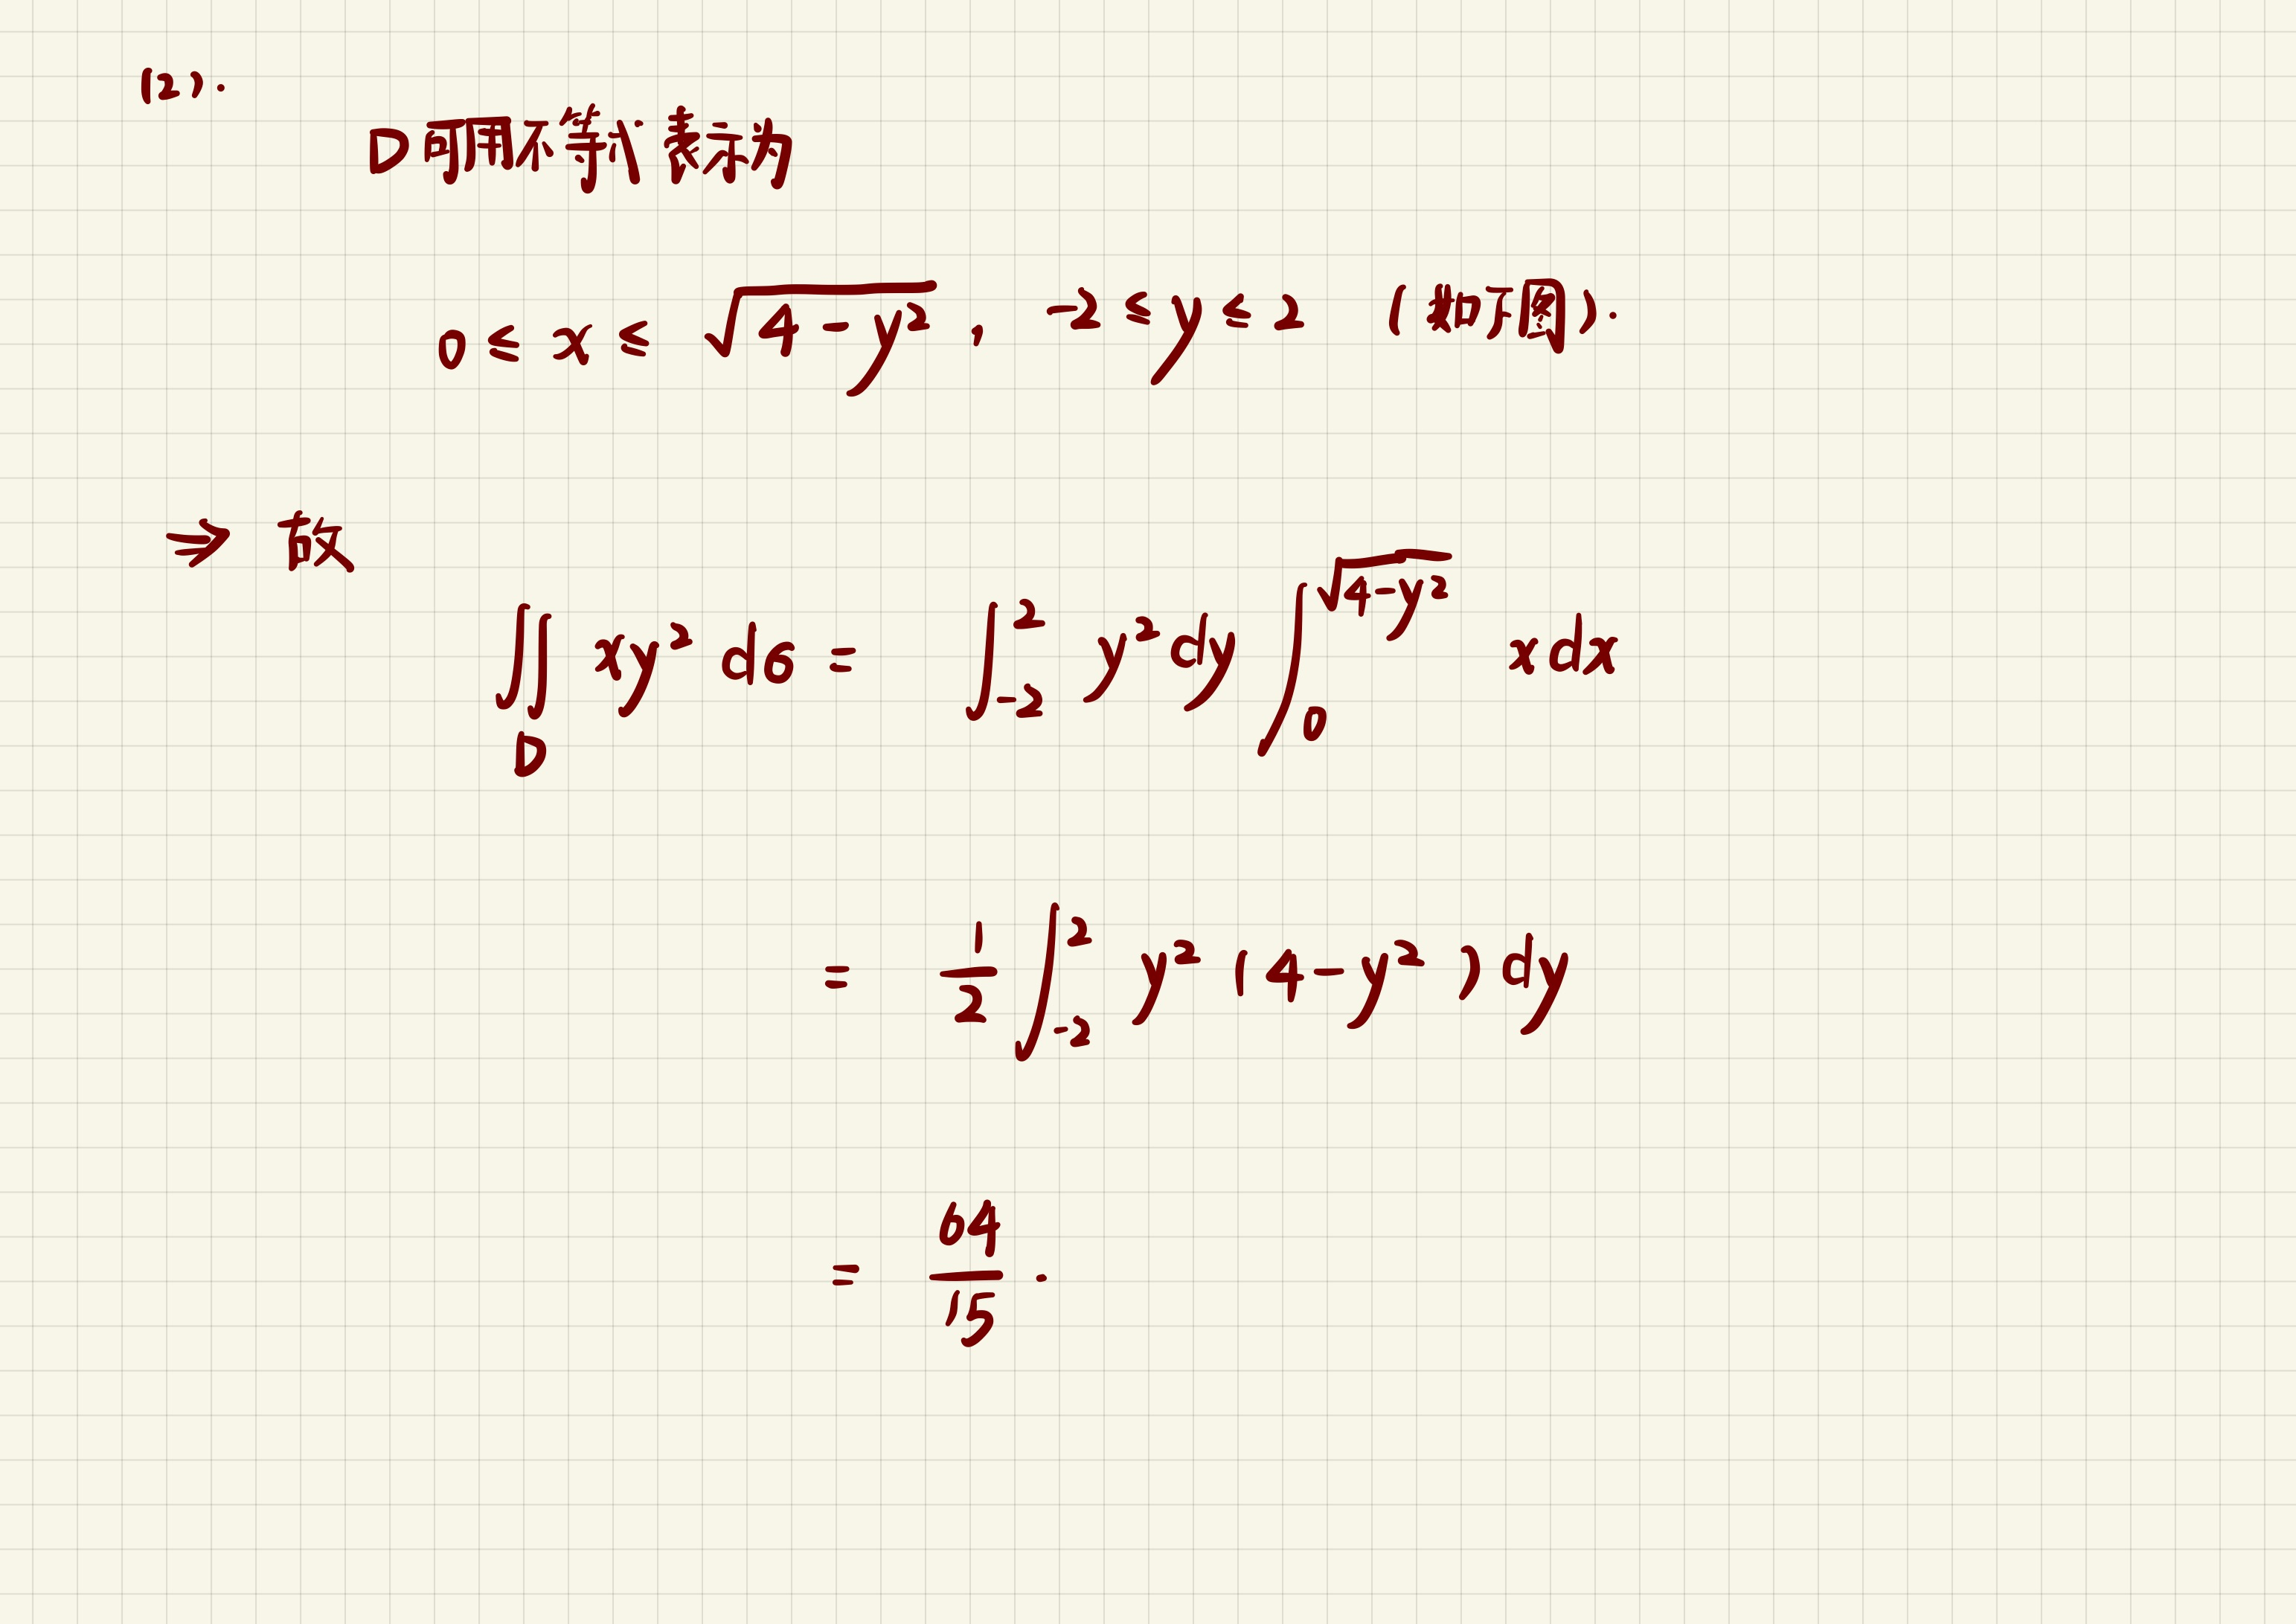 (2).
D可用不等式表示为
0 ≤ x ≤ √(4-y²), -2 ≤ y ≤ 2 (如下图).
⇒ 故
∬_D xy² dσ = ∫_{-2}^{2} y² dy ∫_0^{√(4-y²)} x dx
= 1/2 ∫_{-2}^{2} y² (4-y²) dy
= 64/15 .